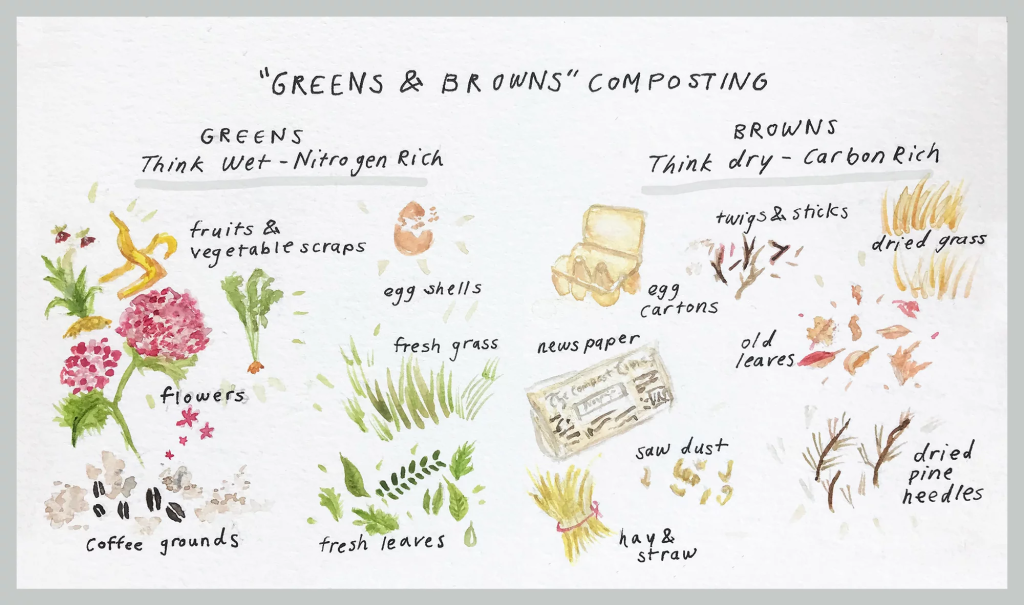 "GREENS & BROWNS" COMPOSTING
GREENS
Think Wet - Nitrogen Rich
fruits &
vegetable scraps
egg shells
fresh grass
flowers
coffee grounds
fresh leaves
BROWNS
Think dry - Carbon Rich
twigs & sticks
dried grass
egg
cartons
newspaper
The Compost Times
old
leaves
saw dust
dried
pine
needles
hay &
straw